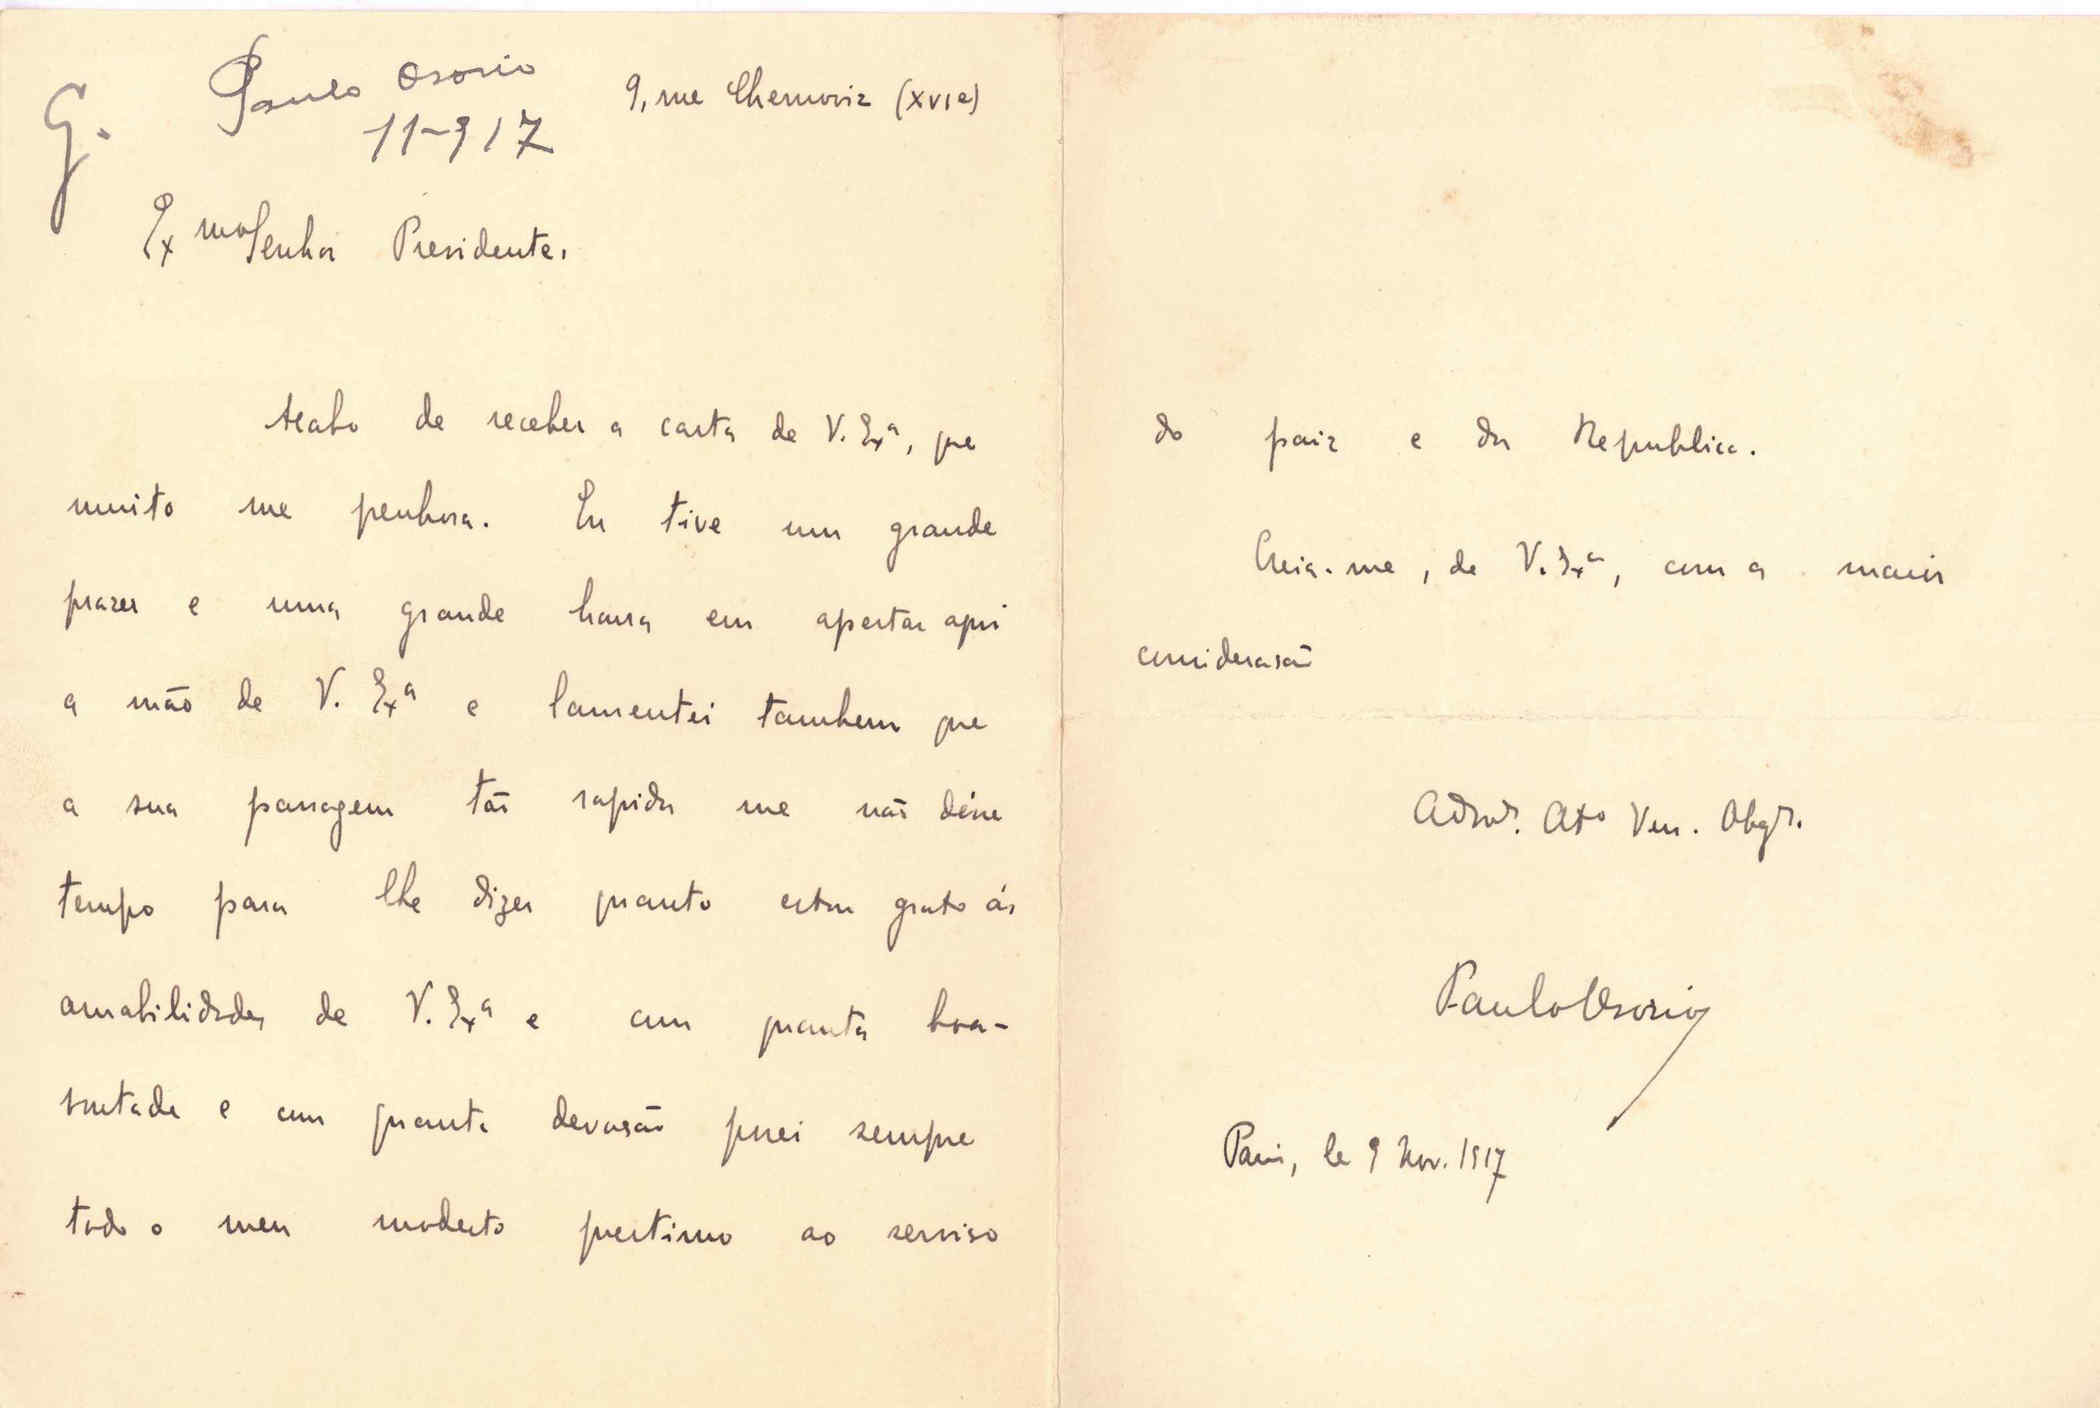 G.
Paulo Osorio
11-917
9, rue Chernoviz (XVIe)
Exmo Senhor Presidente,
Acabo de receber a carta de V. Exª, que
muito me penhora. Eu tive um grande
prazer e uma grande honra em apertar aqui
a mão de V. Exª e lamentei tambem que
a sua passagem tão rapida me não désse
tempo para lhe dizer quanto estou grato ás
amabilidades de V. Exª e com quanta boa-
vontade e com quanta devoção puz sempre
todo o meu modesto prestimo ao serviso
do paiz e da Republica.
Creia-me, de V. Exª, com a maior
considerasão
Admor. Atº Ven. Obgdo.
Paulo Osorio
Paris, le 9 Nov. 1917